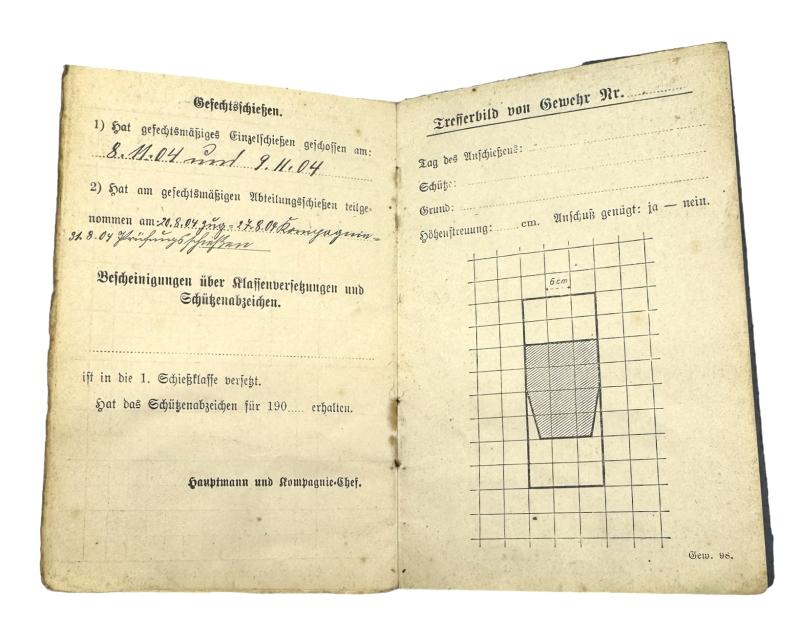 Gefechtsschießen.
1) Hat gefechtsmäßiges Einzelschießen geschossen am:
8.11.04 und 9.11.04
2) Hat am gefechtsmäßigen Abteilungsschießen teilge-
nommen am: 20.8.04 Zug - 27.8.04 Kompagnie -
31.8.04 Prüfungsschießen
Bescheinigungen über Klassenversetzungen und
Schützenabzeichen.
ist in die 1. Schießklasse versetzt.
Hat das Schützenabzeichen für 190..... erhalten.
Hauptmann und Kompagnie-Chef.
Trefferbild von Gewehr Nr. ............
Tag des Anschießens:
Schütze:
Grund:
Höhenstreuung: ...... cm. Anschuß genügt: ja — nein.
6cm
Gew. 98.